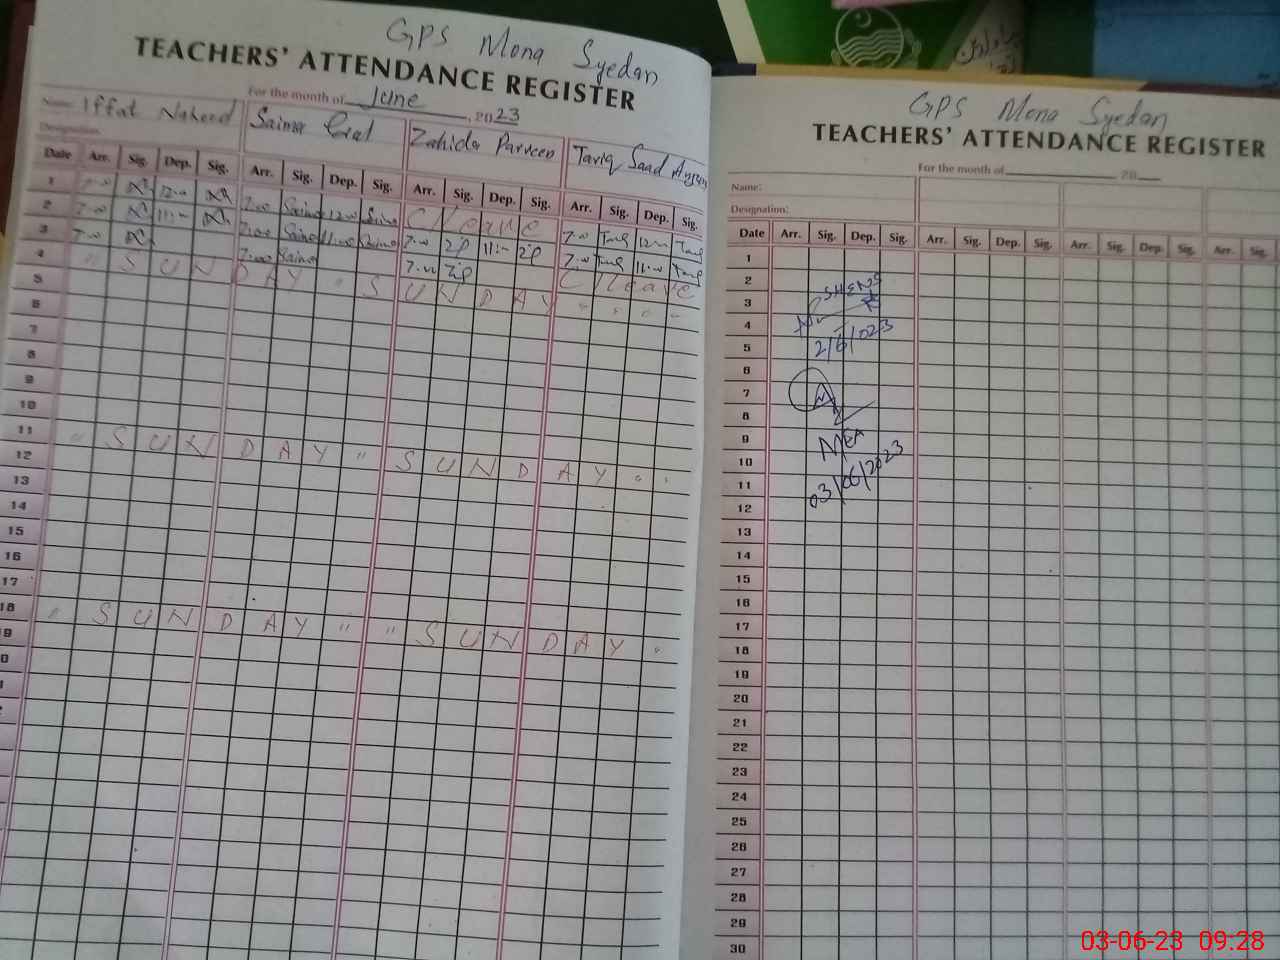 GPS Mona Syedan
TEACHERS' ATTENDANCE REGISTER
For the month of June, 2023
Name: Iffat Naheed Saima Gul Zahida Parveen Tariq Saad Anjum
Designation:
Date Arr. Sig. Dep. Sig. Arr. Sig. Dep. Sig. Arr. Sig. Dep. Sig. Arr. Sig. Dep. Sig.
1 7-00 12-00 7.00 Saima 12-00 Saima C/Leave 7.00 Tariq 12-00 Tariq
2 7-00 11:00 7.00 Saima 11:00 Saima 7.00 Zip 11:00 Zip 7.00 Tariq 11.00 Tariq
3 7-00 7.00 Saima 7.00 Zip C/Leave
4 " SUNDAY " SUNDAY " " " "
5
6
7
8
9
10
11 " SUNDAY " SUNDAY " "
12
13
14
15
16
17
18 " SUNDAY " " SUNDAY "
GPS Mona Syedan
TEACHERS' ATTENDANCE REGISTER
For the month of 20
Name:
Designation:
Date Arr. Sig. Dep. Sig. Arr. Sig. Dep. Sig. Arr. Sig. Dep. Sig. Arr. Sig.
1
2
3
4
5
6
7
8
9
10
11
12
13
14
15
16
17
18
19
20
21
22
23
24
25
26
27
28
29
30
2/6/023
MEA
03/06/2023
03-06-23 09:28